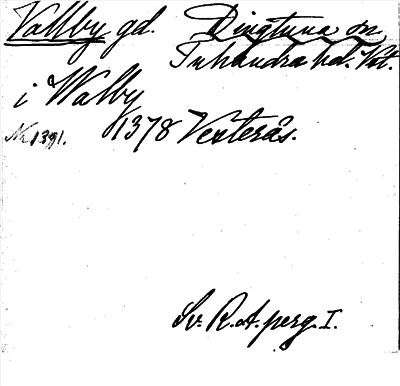 Vallby gd. Dingtuna sn,
Tuhundra hd. Vstm.
i Walby
Nr 1391. 1378 Vesterås.
Sv. R. A. perg. I.